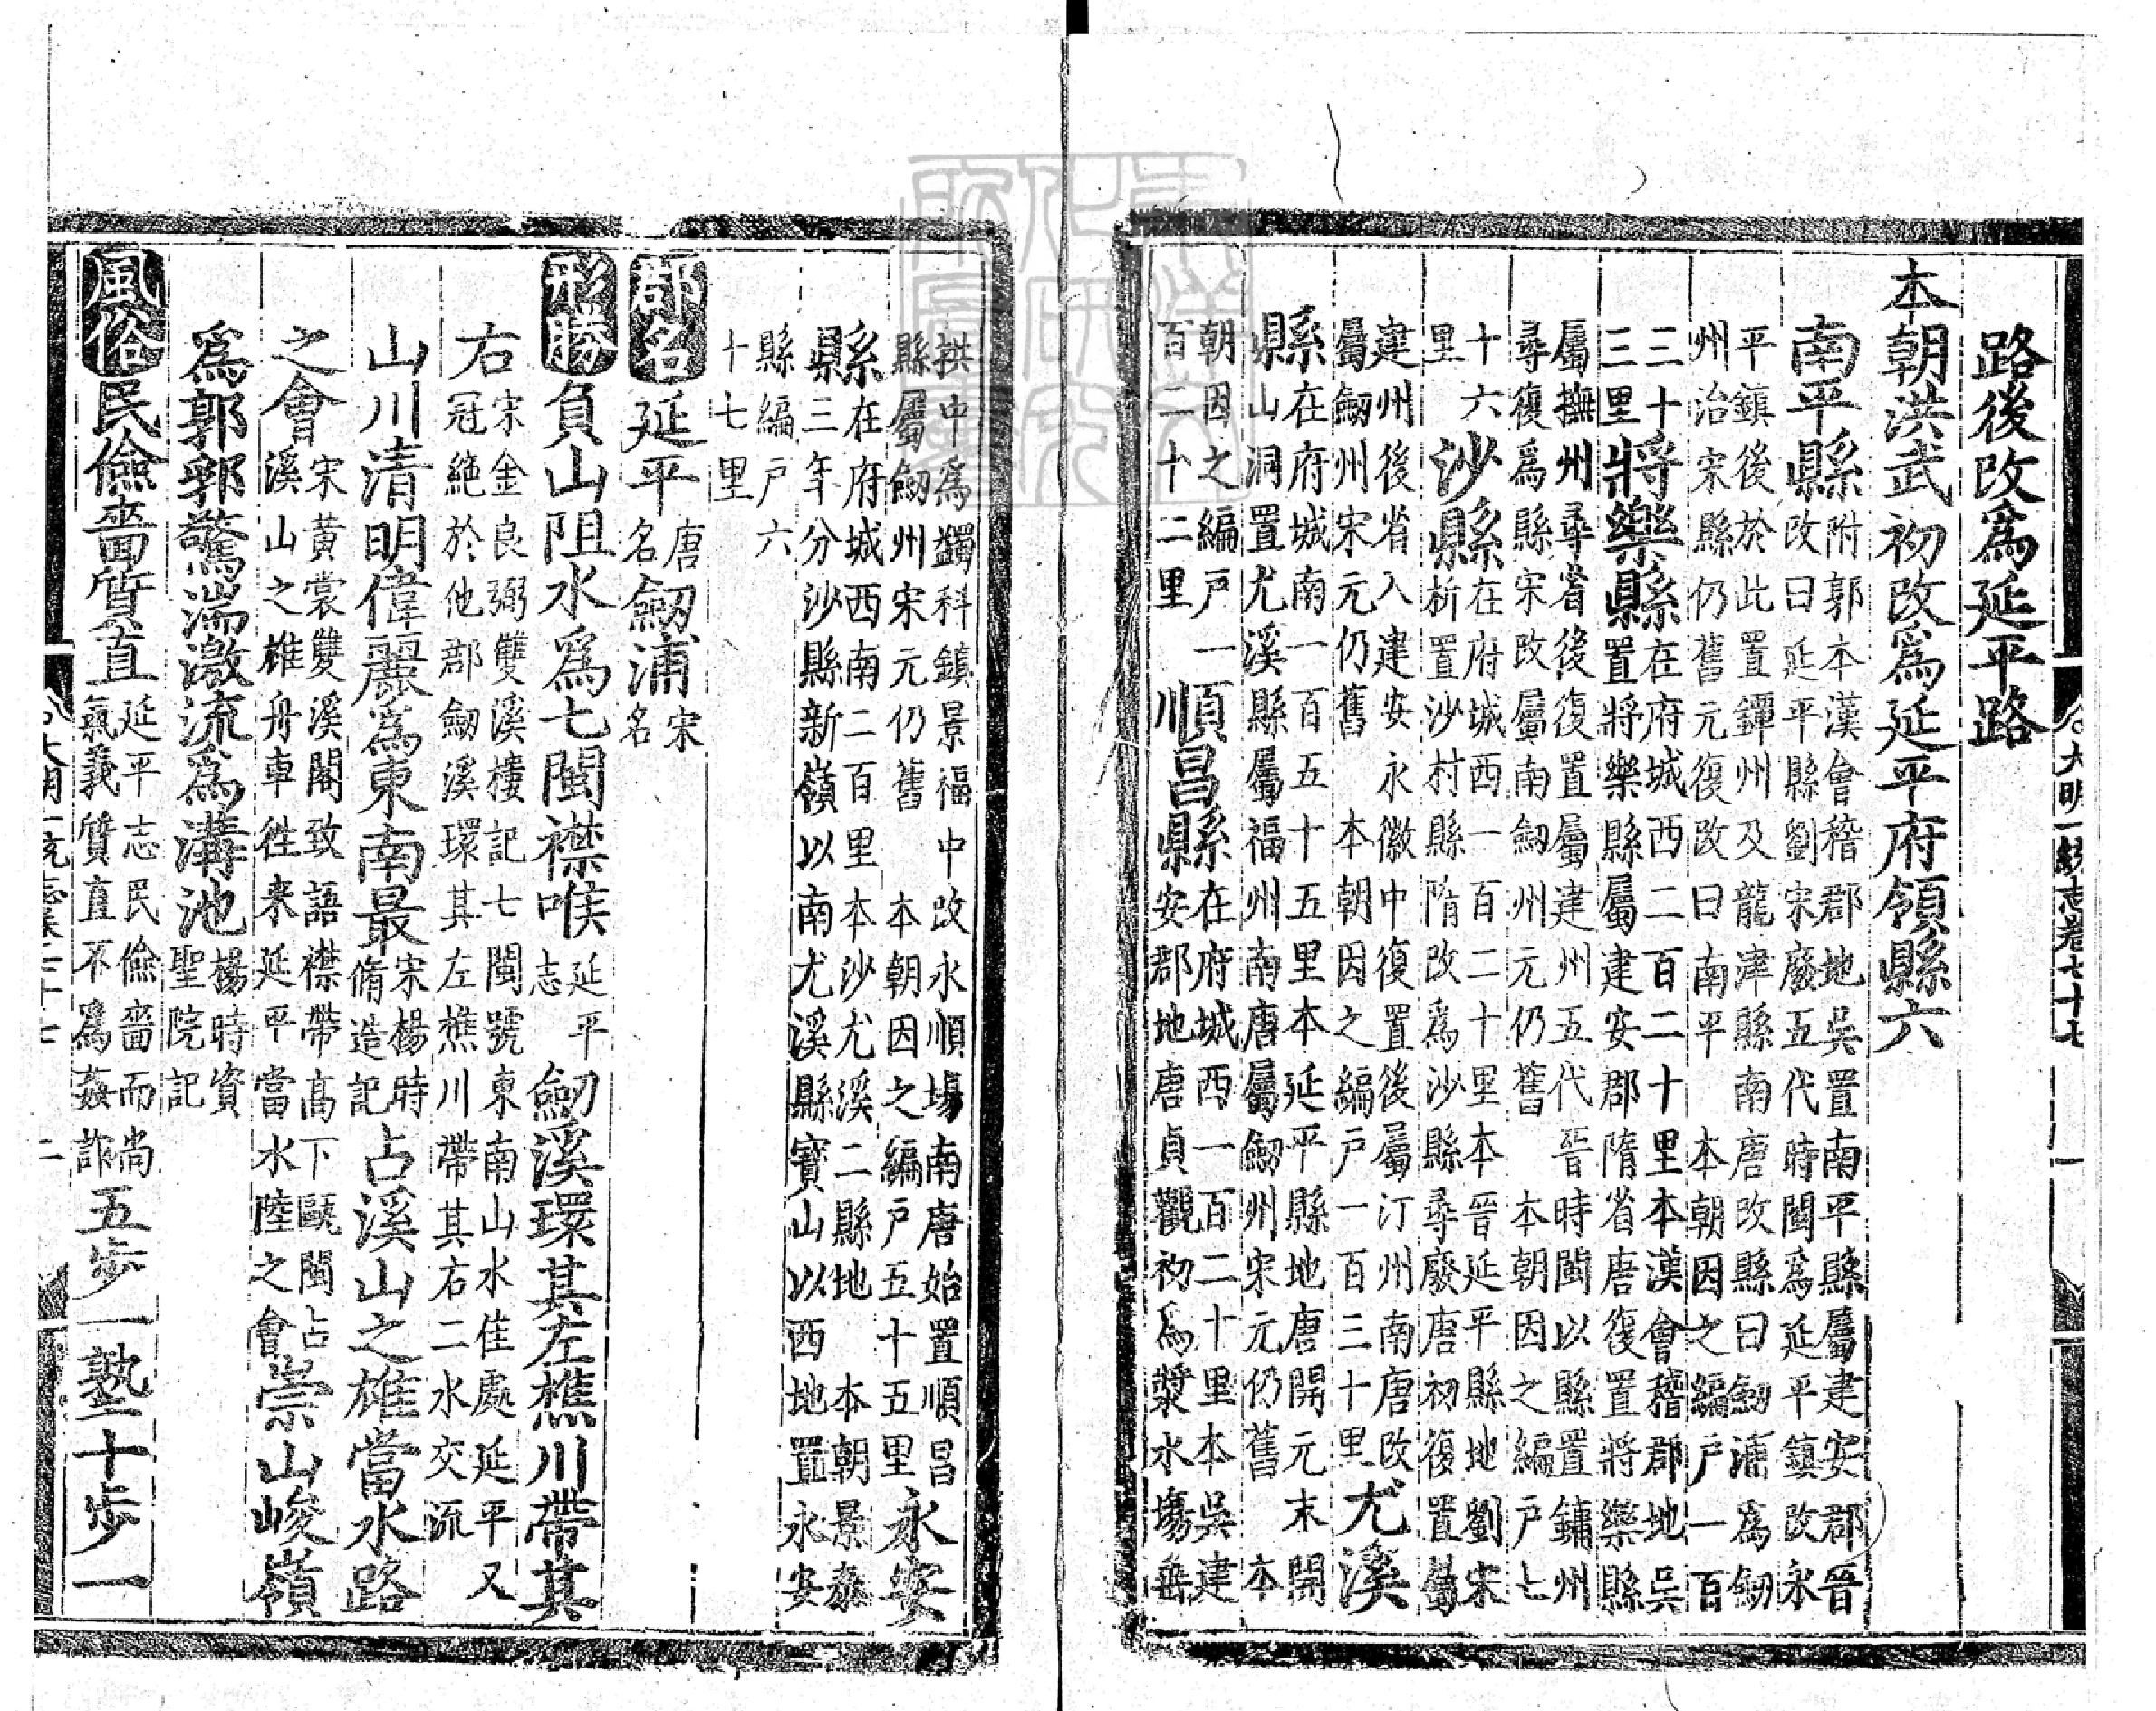 路後改為延平路
本朝洪武初改為延平府領縣六
南平縣附郭本漢會稽郡地吳置南平縣屬建安郡晉改曰延平縣劉宋廢五代時閩為延平鎮改永
平鎮後於此置鐔州及龍津縣南唐改縣曰劒浦為劒州治宋縣仍舊元復改曰南平 本朝因之編戶一百
三十三里將樂縣在府城西二百二十里本漢會稽郡地吳置將樂縣屬建安郡隋省唐復置將樂縣
屬撫州尋省後復置屬建州五代晉時閩以縣置鏞州尋復為縣宋改屬南劒州元仍舊 本朝因之編戶七
十六里 沙縣在府城西一百二十里本晉延平縣地劉宋析置沙村縣隋改為沙縣尋廢唐初復置屬
建州後省入建安永徽中復置後屬汀州南唐改屬劒州宋元仍舊 本朝因之編戶一百三十里尤溪
縣在府城南一百五十五里本延平縣地唐開元末開山洞置尤溪縣屬福州南唐屬劒州宋元仍舊 本
朝因之編戶一百二十二里 順昌縣在府城西一百二十里本吳建安郡地唐貞觀初為漿水場垂
大明一統志卷七十七 一
拱中為蠲科鎮景福中改永順場南唐始置順昌縣屬劒州宋元仍舊 本朝因之編戶五十五里永安
縣在府城西南二百里本沙尤溪二縣地 本朝景泰三年分沙縣新嶺以南尤溪縣寶山以西地置永安
縣編戶六十七里
郡名延平唐名劒浦宋名
形勝負山阻水為七閩襟喉延平志 劒溪環其左樵川帶其
右宋金良弼雙溪樓記七閩號東南山水佳處延平又冠絕於他郡劒溪環其左樵川帶其右二水交流
山川清明偉麗為東南最宋楊時脩造記占溪山之雄當水路
之會宋黃裳雙溪閣致語襟帶高下甌閩占溪山之雄舟車徃来延平當水陸之會崇山峻嶺
為郭郛驚湍激流為溝池楊時資聖院記
風俗民儉嗇質直延平志民儉嗇而尚氣義質直不為姦詐五步一塾十步一
大明一統志卷七十七 二